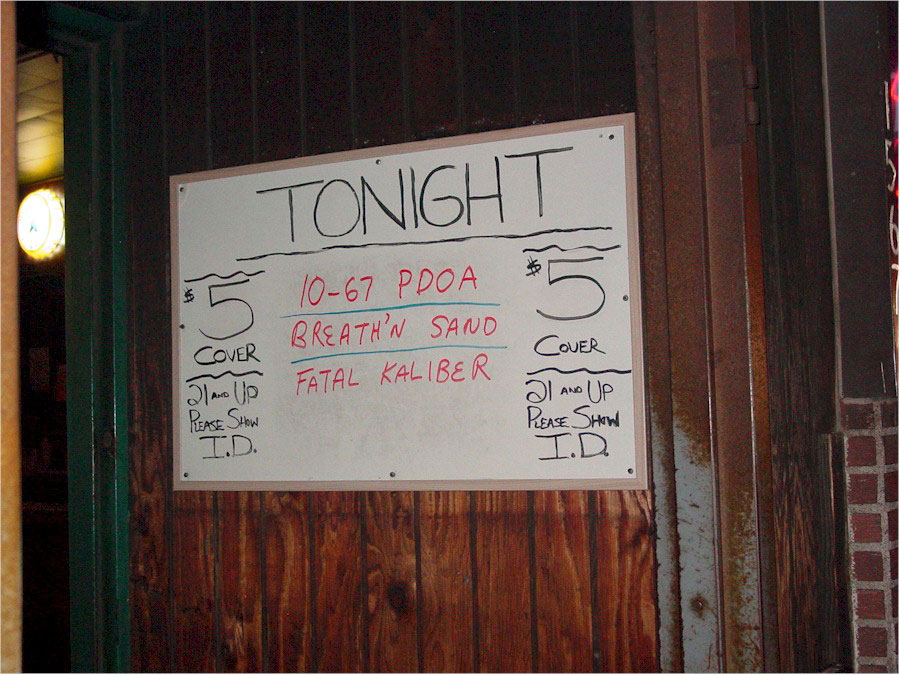 TONIGHT
$5
COVER
21 AND UP
PLEASE SHOW
I.D.
10-67 PDOA
BREATH'N SAND
FATAL KALIBER
$5
COVER
21 AND UP
PLEASE SHOW
I.D.